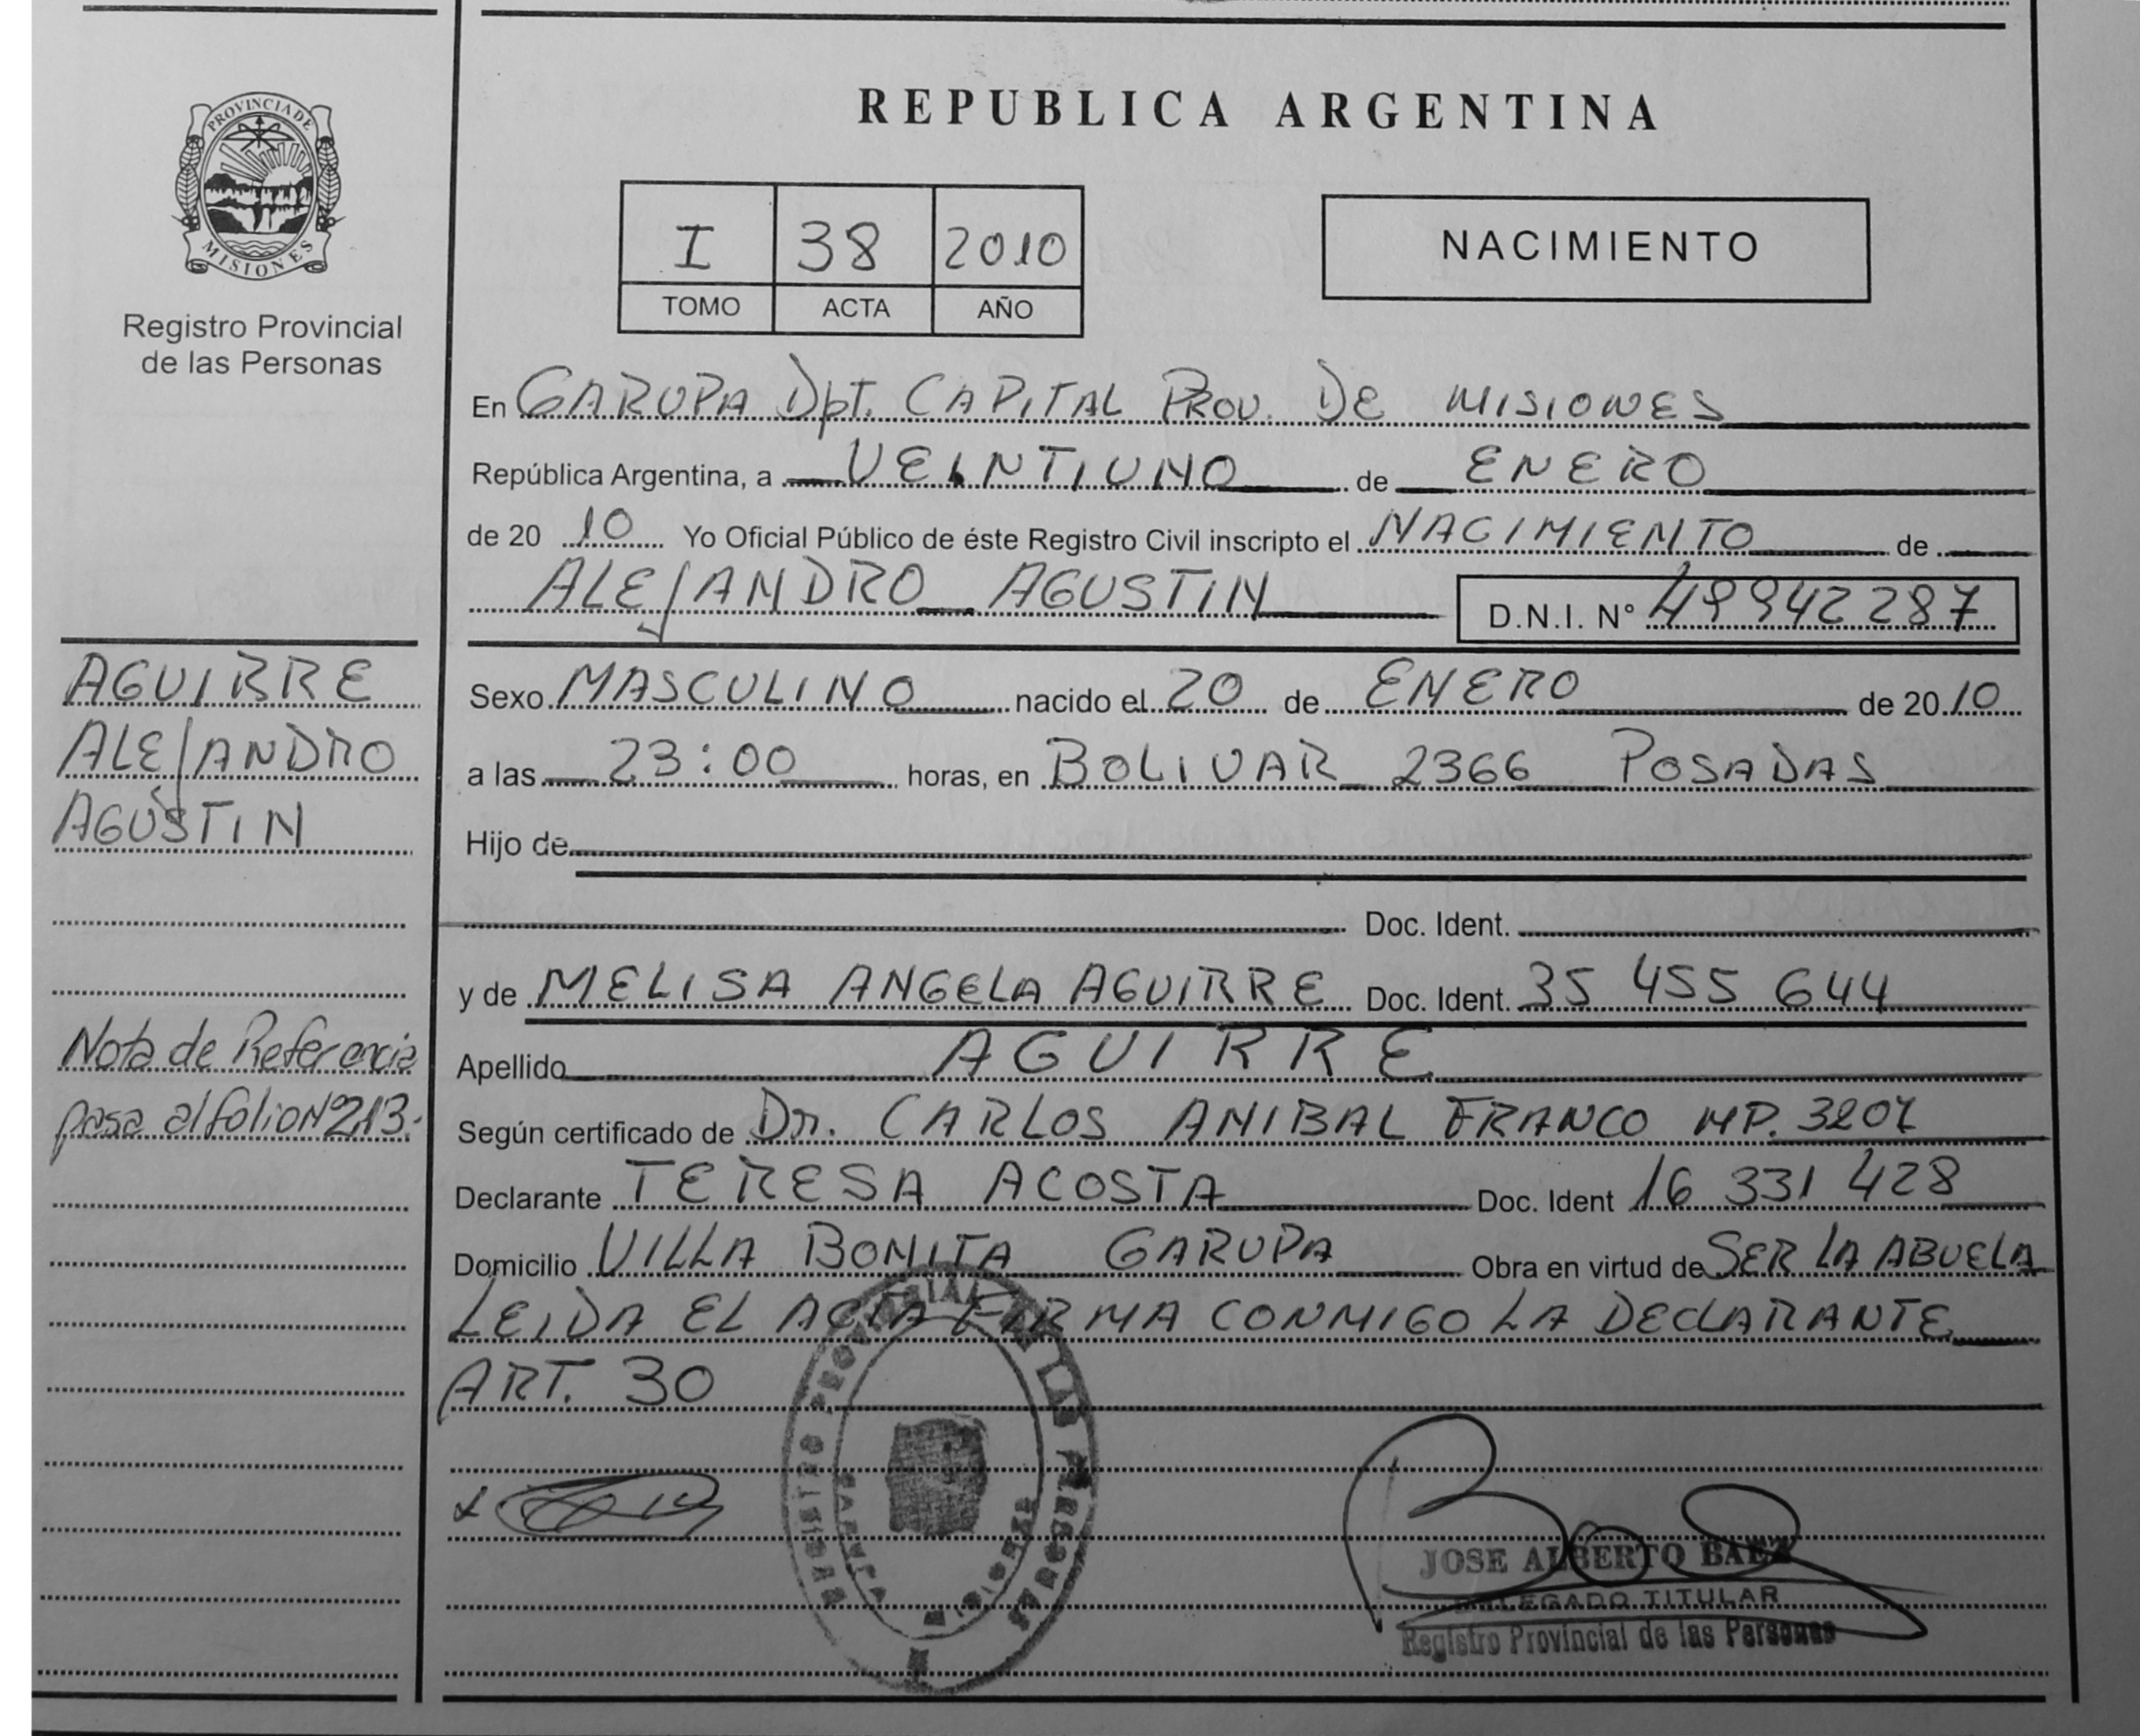 REPUBLICA ARGENTINA
PROVINCIA DE
MISIONES
Registro Provincial
de las Personas
I 38 2010
TOMO ACTA AÑO
NACIMIENTO
En GARUPA Dpt. CAPITAL PROV. DE MISIONES
República Argentina, a VEINTIUNO de ENERO
de 20 10 Yo Oficial Público de éste Registro Civil inscripto el NACIMIENTO de
ALEJANDRO AGUSTIN D.N.I. N° 49942287
AGUIRRE
ALEJANDRO
AGUSTIN
Sexo MASCULINO nacido el 20 de ENERO de 20 10
a las 23:00 horas, en BOLIVAR 2366 POSADAS
Hijo de
Doc. Ident.
y de MELISA ANGELA AGUIRRE Doc. Ident. 35 455 644
Nota de Referencia
pasa al folio Nº 213.
Apellido AGUIRRE
Según certificado de Dr. CARLOS ANIBAL FRANCO MP. 3207
Declarante TERESA ACOSTA Doc. Ident 16 331 428
Domicilio VILLA BONITA GARUPA Obra en virtud de SER LA ABUELA
LEIDA EL ACTA FIRMA CONMIGO LA DECLARANTE
ART. 30
REGISTRO PROVINCIAL DE LAS PERSONAS
GARUPA
MISIONES
JOSE ALBERTO BAEZ
DELEGADO TITULAR
Registro Provincial de las Personas